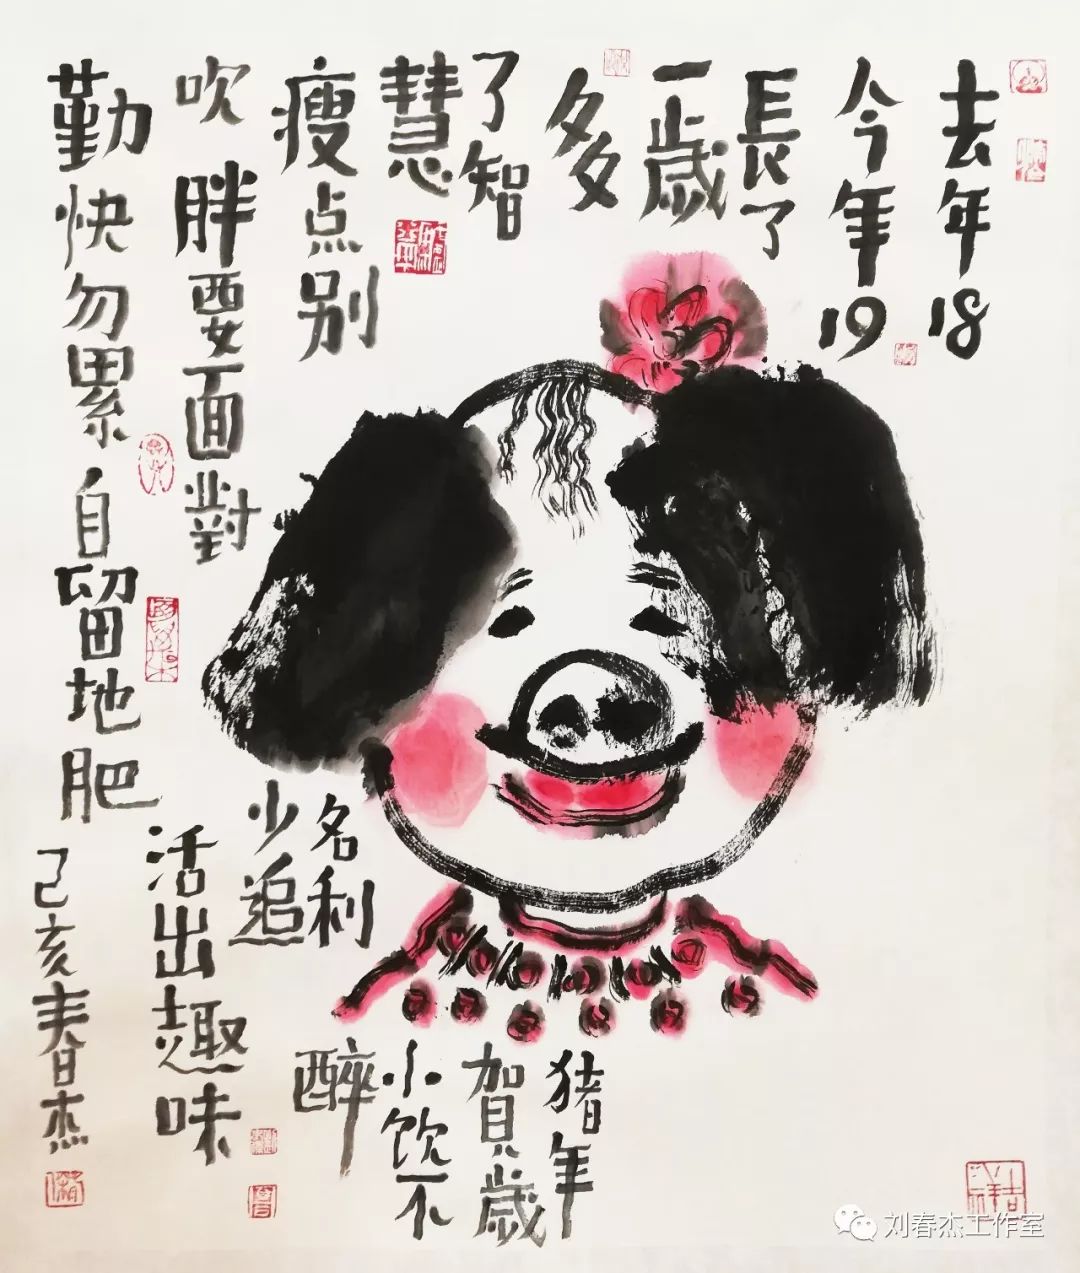 去年18
今年19
長了
一歲
多
了智
慧
瘦点别
吹
胖要面對
勤快勿累
自留地肥
名利
少追
活出趣味
猪年
賀歲
小饮不
醉
己亥春杰
吉祥
刘春杰工作室